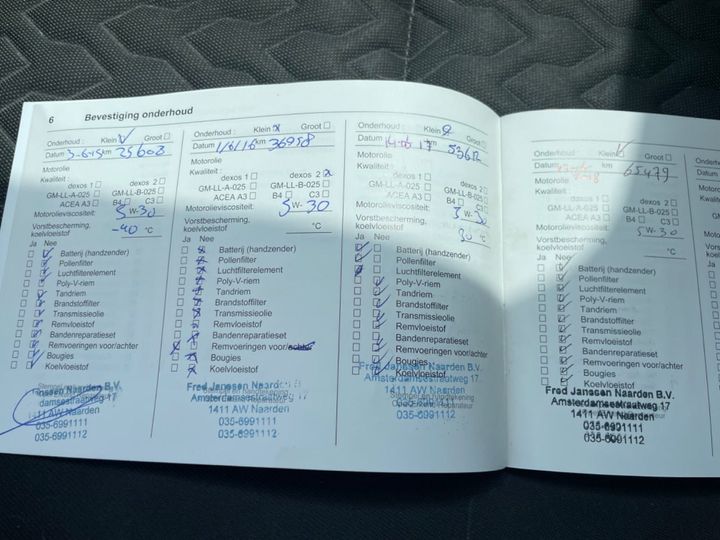 6 Bevestiging onderhoud
Onderhoud : Klein Groot
Datum 3-6-15 km 25608
Motorolie
Kwaliteit :
dexos 1 dexos 2
GM-LL-A-025 GM-LL-B-025
ACEA A3 B4 C3
Motorolieviscositeit:
5W-30
Vorstbescherming,
koelvloeistof -40 °C
Ja Nee
Batterij (handzender)
Pollenfilter
Luchtfilterelement
Poly-V-riem
Tandriem
Brandstoffilter
Transmissieolie
Remvloeistof
Bandenreparatieset
Remvoeringen voor/achter
Bougies
Koelvloeistof
Janssen Naarden B.V.
damsestraatweg 17
1411 AW Naarden
035-6991111
035-6991112
Onderhoud : Klein x Groot
Datum 1/6/16 km 36958
Motorolie
Kwaliteit :
dexos 1 dexos 2 x
GM-LL-A-025 GM-LL-B-025
ACEA A3 B4 C3
Motorolieviscositeit:
5W-30
Vorstbescherming,
koelvloeistof °C
Ja Nee
Batterij (handzender)
Pollenfilter
Luchtfilterelement
Poly-V-riem
Tandriem
Brandstoffilter
Transmissieolie
Remvloeistof
Bandenreparatieset
Remvoeringen voor/achter
Bougies
Koelvloeistof
Fred Janssen Naarden B.V.
Amsterdamsestraatweg 17
1411 AW Naarden
035-6991111
035-6991112
Onderhoud : Klein Groot
Datum km
Motorolie
Kwaliteit :
dexos 1 dexos 2
GM-LL-A-025 GM-LL-B-025
ACEA A3 B4 C3
Motorolieviscositeit:
5W-30
Vorstbescherming,
koelvloeistof 30 °C
Ja Nee
Batterij (handzender)
Pollenfilter
Luchtfilterelement
Poly-V-riem
Tandriem
Brandstoffilter
Transmissieolie
Remvloeistof
Bandenreparatieset
Remvoeringen voor/achter
Bougies
Koelvloeistof
Fred Janssen Naarden B.V.
Amsterdamsestraatweg 17
1411 AW Naarden
035-6991111
035-6991112
Onderhoud : Klein Groot
Datum km 65479
Motorolie
Kwaliteit :
dexos 1 dexos 2
GM-LL-A-025 GM-LL-B-025
ACEA A3 B4 C3
Motorolieviscositeit:
5W-30
Vorstbescherming,
koelvloeistof °C
Ja Nee
Batterij (handzender)
Pollenfilter
Luchtfilterelement
Poly-V-riem
Tandriem
Brandstoffilter
Transmissieolie
Remvloeistof
Bandenreparatieset
Remvoeringen voor/achter
Bougies
Koelvloeistof
Fred Janssen Naarden B.V.
Amsterdamsestraatweg 17
1411 AW Naarden
035-6991111
035-6991112